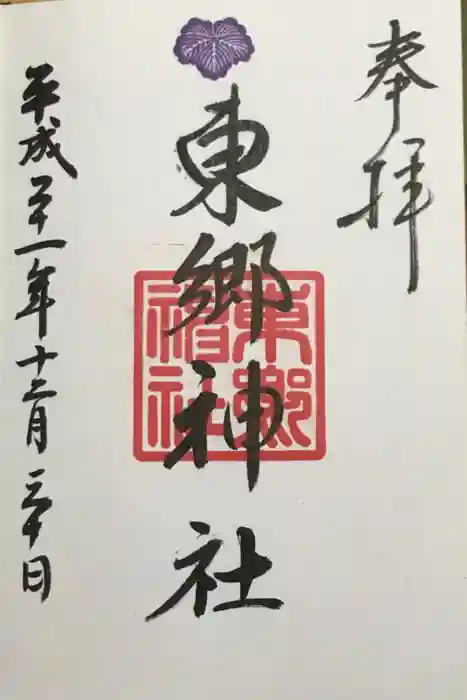 奉拝
東郷神社
東郷神社
平成二十一年十二月三十日